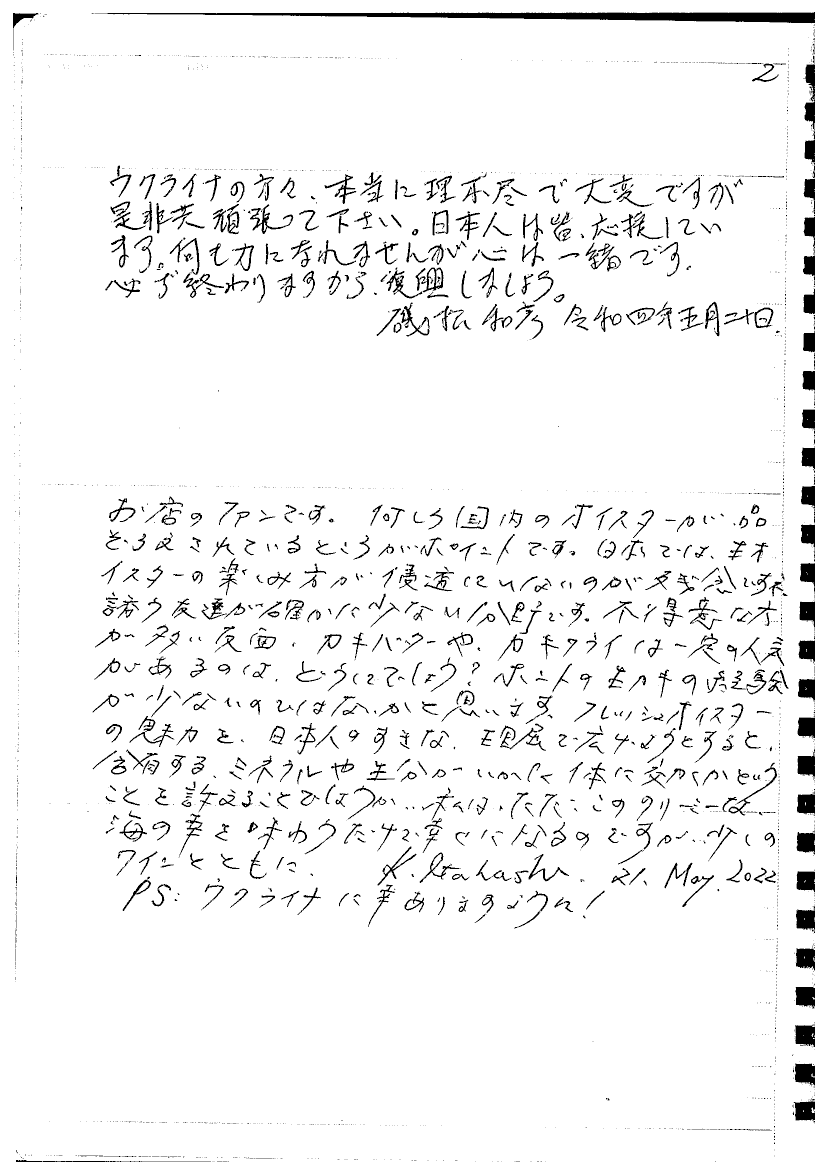 2
ウクライナの方々、本当に理不尽で大変ですが
是非共頑張って下さい。日本人は皆、応援してい
ます。何も力になれませんが心は一緒です。
必ず終わりますから、復興しましょう。
磯松 和彦 令和四年五月二十日.
お店のファンです。 何しろ国内のオイスターが品
ぞろえされているところがポイントです。日本では、生オ
イスターの楽しみ方が浸透していないのが残念ですネ、
誘う友達が確かに少ない分野です。不得意な方
が多い反面、カキバターや、カキフライは一定の人気
があるのは、どうしてでしょう？ホントの生カキの経験
が少ないのではないかと思います、フレッシュオイスター
の魅力を、日本人のすきな、理屈で広めようとすると、
含有する、ミネラルや 分がいかに体に効くかという
ことを訴えることでしょうか… 私は、ただ、このクリーミーな、
海の幸を味わうだけで幸せになるのですが…少しの
ワインとともに、 K. Itahashi. 21. May. 2022
PS: ウクライナに幸ありますように！